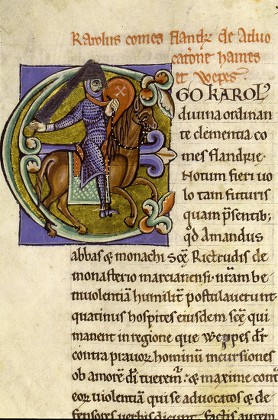 Karolus comes flandrie de aduo
catione hames
et wepes.
EGO KAROL'
diuina ordinan
te clementia co
mes flandrie.
Notum fieri uo
lo tam futuris
quam p̄sentib;
qđ Amandus
abbas & monachi sc̄e Rictrudis de
monasterio marcianensi. nr̄am be
niuolentiā humilit̄ postulauerunt
quatinus hospites eiusdem sc̄e qui
manent in regione que weppes dr̄
contra prauor hominū incursiones
ob amorē dī tuerem̄. & maxime cont̄
eor uiolentiā qui se aduocatos & de
fensores